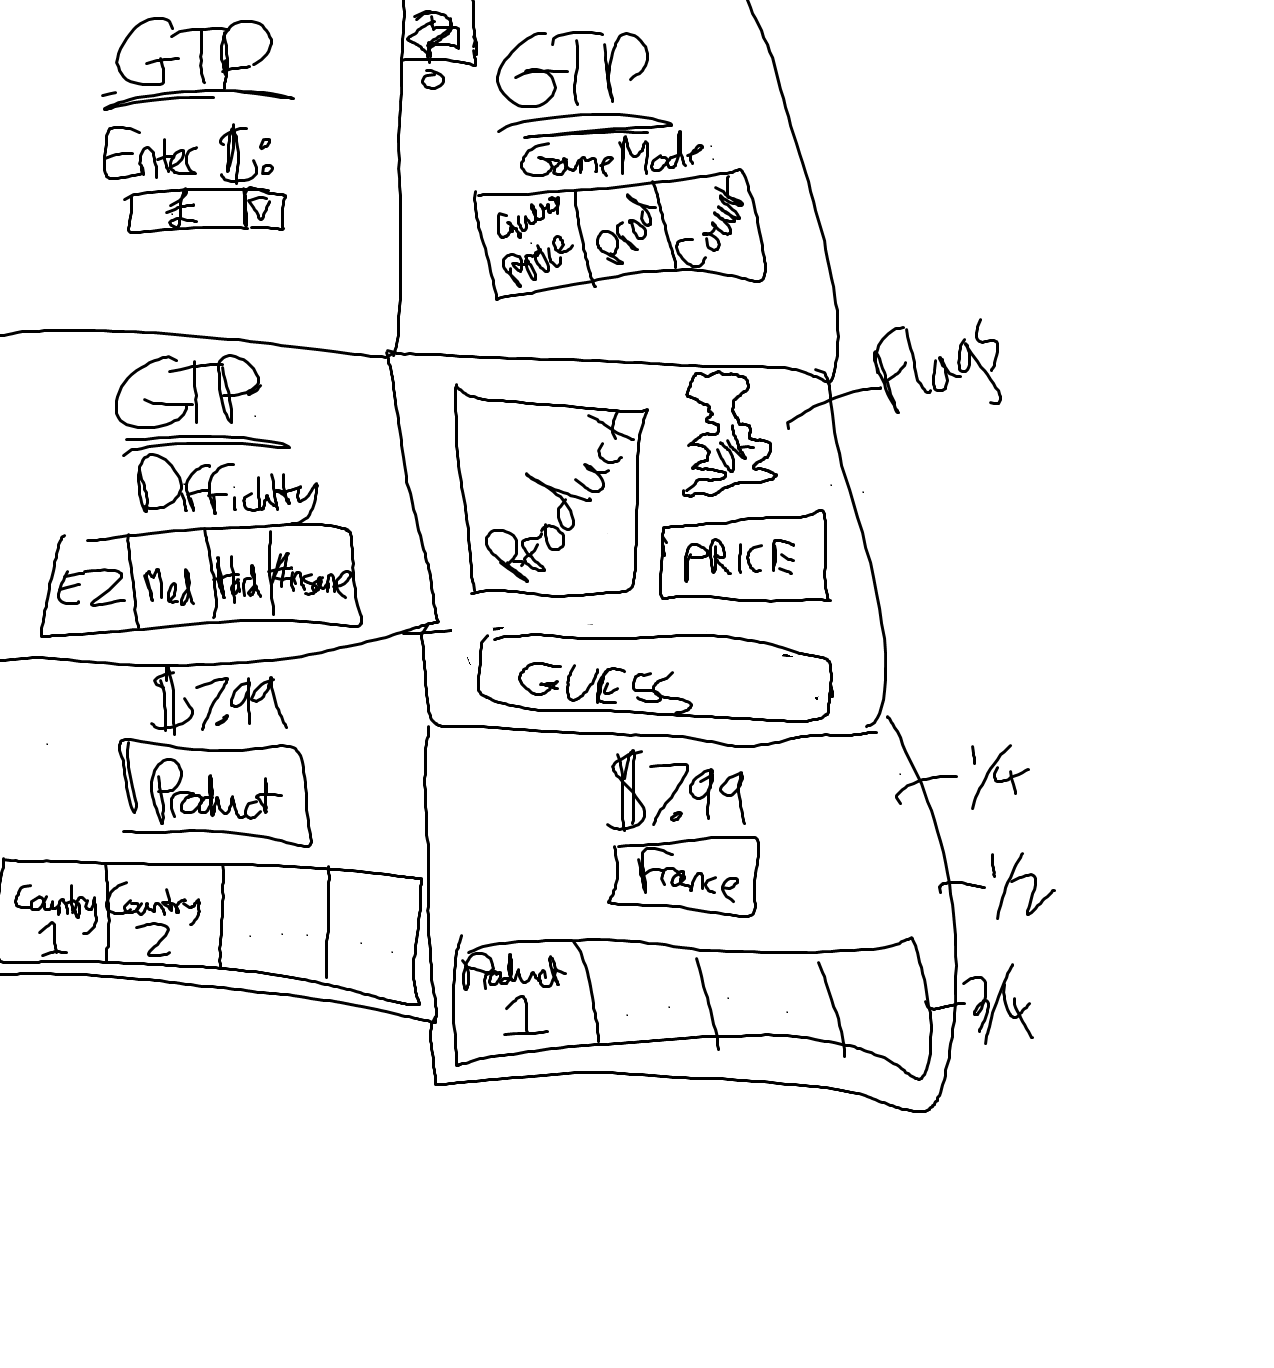 GTP
Enter $:
£
?
GTP
GameMode
Guess Price
Prod
Count
GTP
Difficulty
EZ Med Hard Insane
Product
UK
Flags
PRICE
GUESS
$7.99
Product
Country 1
Country 2
$7.99
France
Product 1
1/4
1/2
3/4